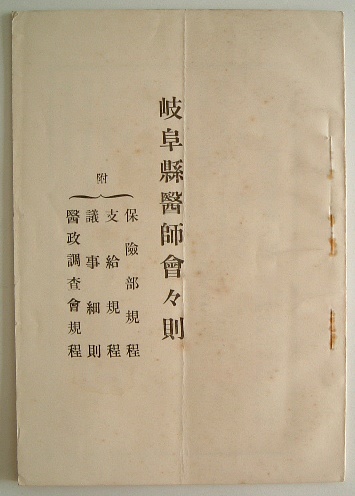 岐阜縣醫師會々則
附
保險部規程
支給規程
議事細則
醫政調査會規程